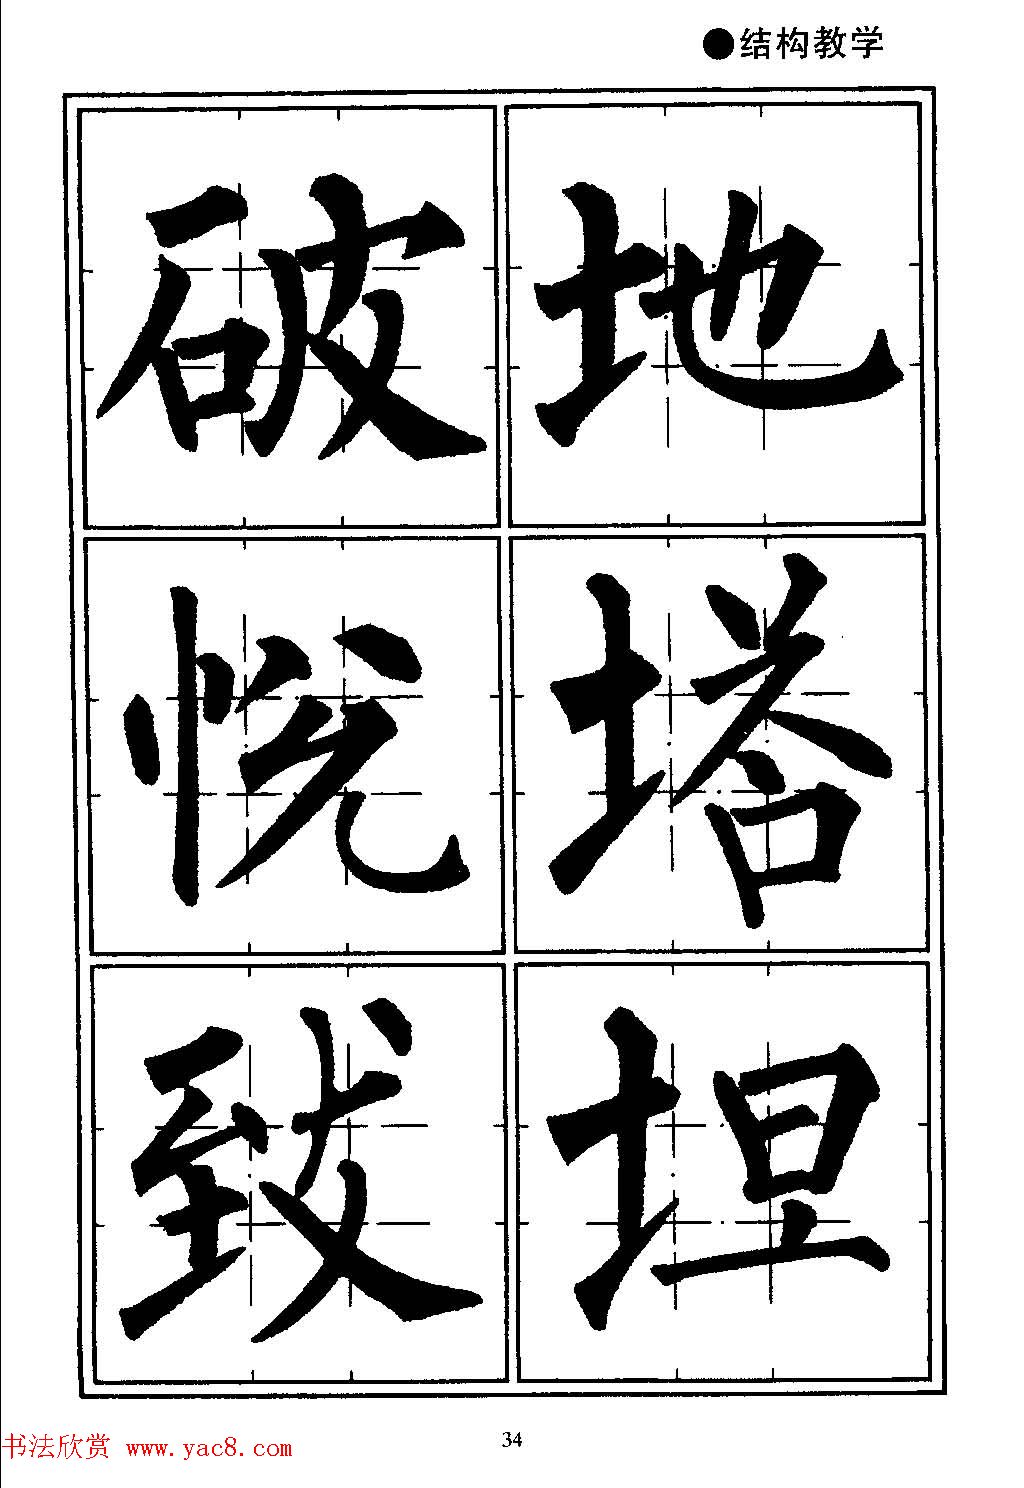 ●结构教学
地塔坦
破悦致
34
书法欣赏 www.yac8.com